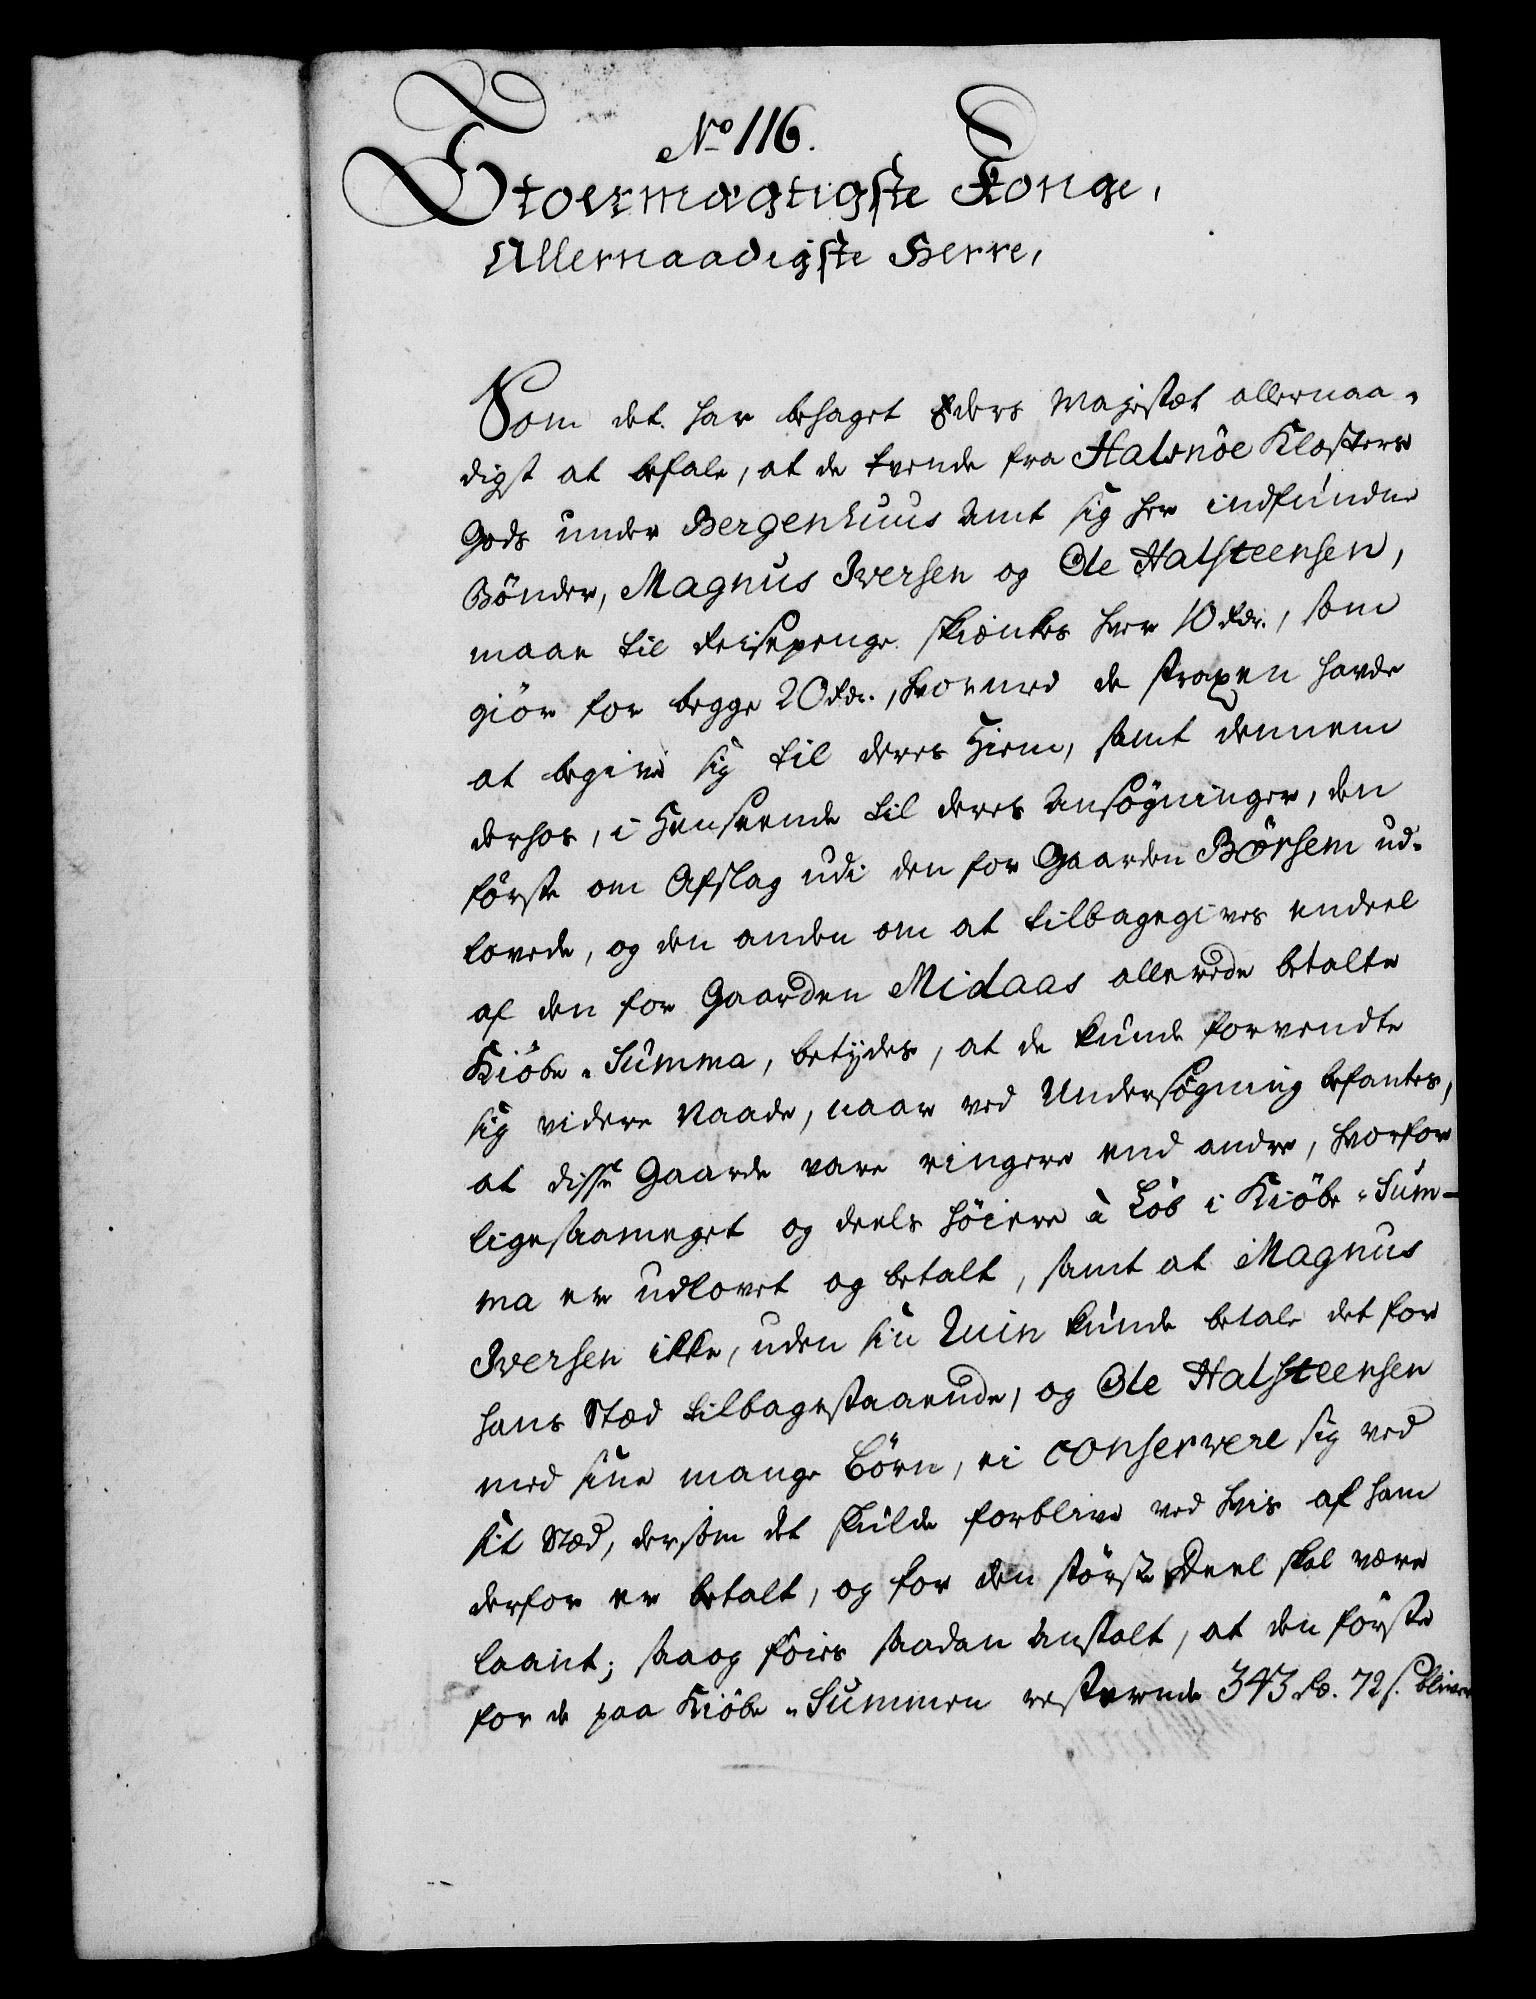 No 116.
Stoermægtigste Konge,
Allernaadigste Herre,
Som det har behaget Eders Majestæt allernaa-
digst at befale, at de tvende fra Halsnöe Klosters
Gods under Bergenhuus Amt sig her indfundne
Bönder, Magnus Iversen og Ole Halsteensen,
maae til Reisepenge skienkes hver 10 Rdr., som
giör for begge 20 Rdr., hvormed de straxen havde
at begive sig til deres Hiem, samt dennem
derhos, i Henseende til deres Ansögninger, den
förste om Afslag udi den for Gaarden Börsem ud-
lovede, og den anden om at tilbagegives endeel
af den for Gaarden Midaas allerede betalte
Kiöbe-Summa, betydes, at de kunde forvendte
sig videre Naade, naar ved Undersögning befantes,
at disse Gaarde vare ringere end andre, hvorfor
ligesaameget og deels höiere à Löb i Kiöbe-Sum-
ma er udlovet og betalt, samt at Magnus
Iversen ikke, uden sin Ruin kunde betale det for
hans Stæd tilbagestaaende, og Ole Halsteensen
med sine mange Börn, ei conservere sig ved
sit Stæd, dersom det skulde forblive ved hvis af ham
derfor er betalt, og for den störste Deel skal være
laant; saa og föies saadan Anstalt, at den förste
for de paa Kiöbe-Summen resterende 343 Rd. 72 s. bliver